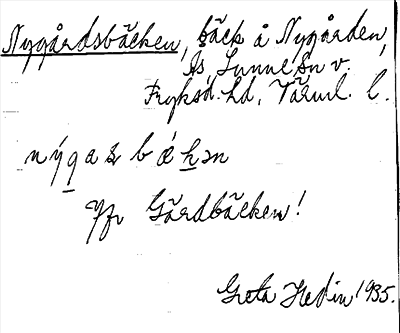 Nygårdsbäcken, bäck å Nygården,
Ås, Sunne sn v.,
Fryksd. hd, Värml. l.
nýgasbækən
Jfr Gårdbäcken!
Greta Hedin 1935.